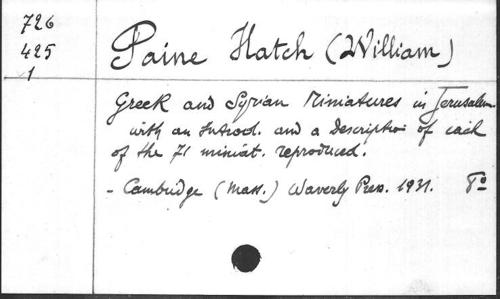 726
425
1
Paine Hatch (William)
Greek and Syrian Miniatures in Jerusalem
with an Introd. and a Description of each
of the 71 miniat. reproduced.
- Cambridge (Mass.) Waverly Press. 1931. 8º